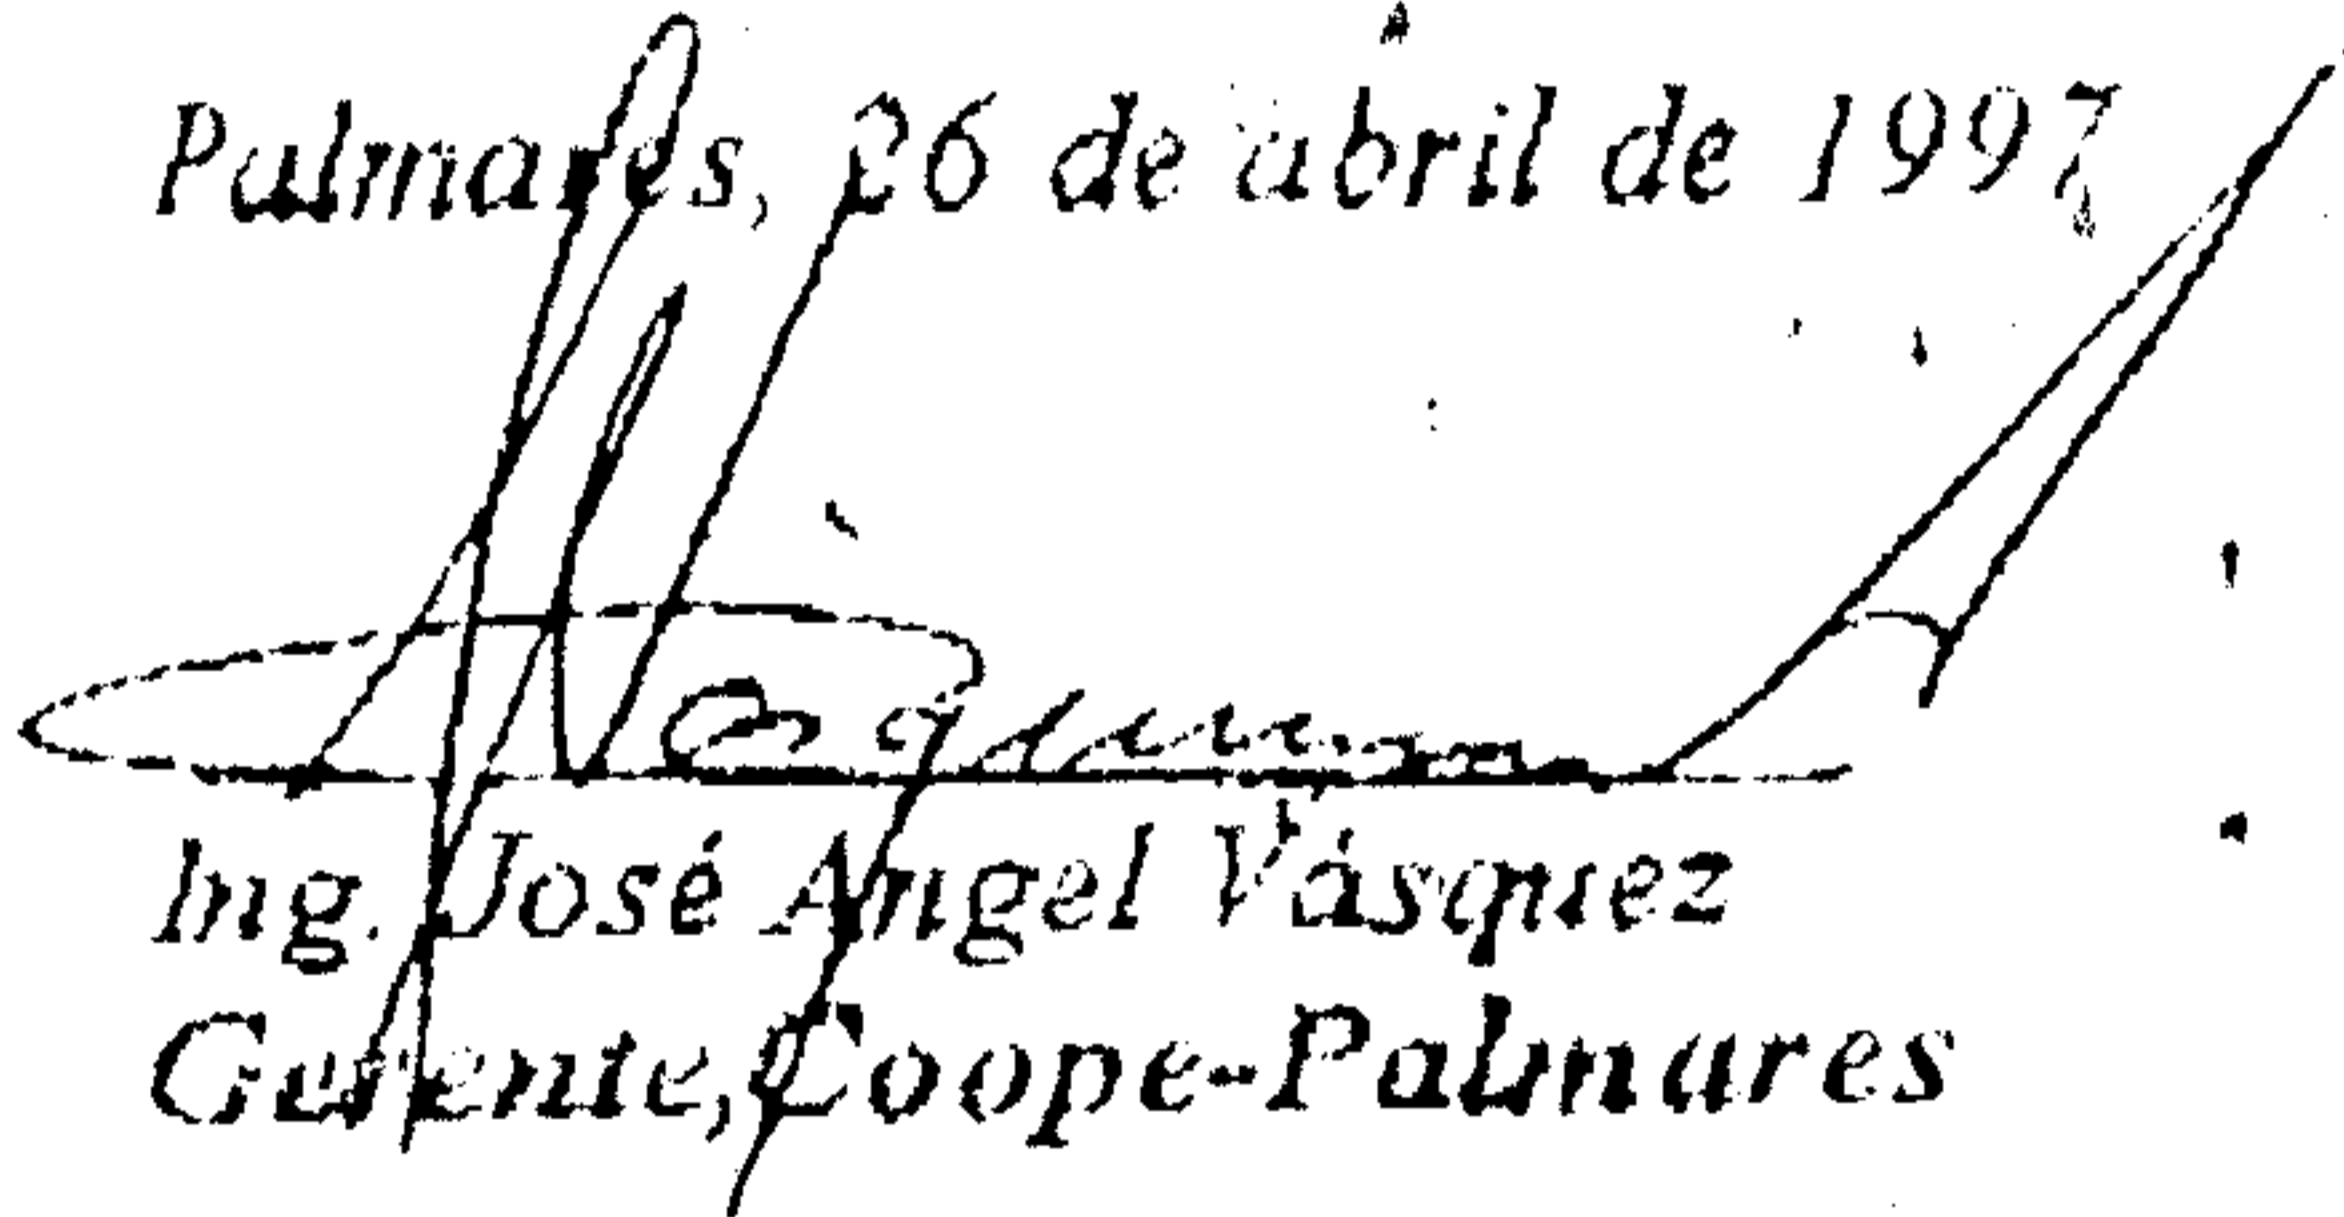 Palmares, 26 de abril de 1997
Ing. José Angel Vásquez
Gerente, Coope-Palmares